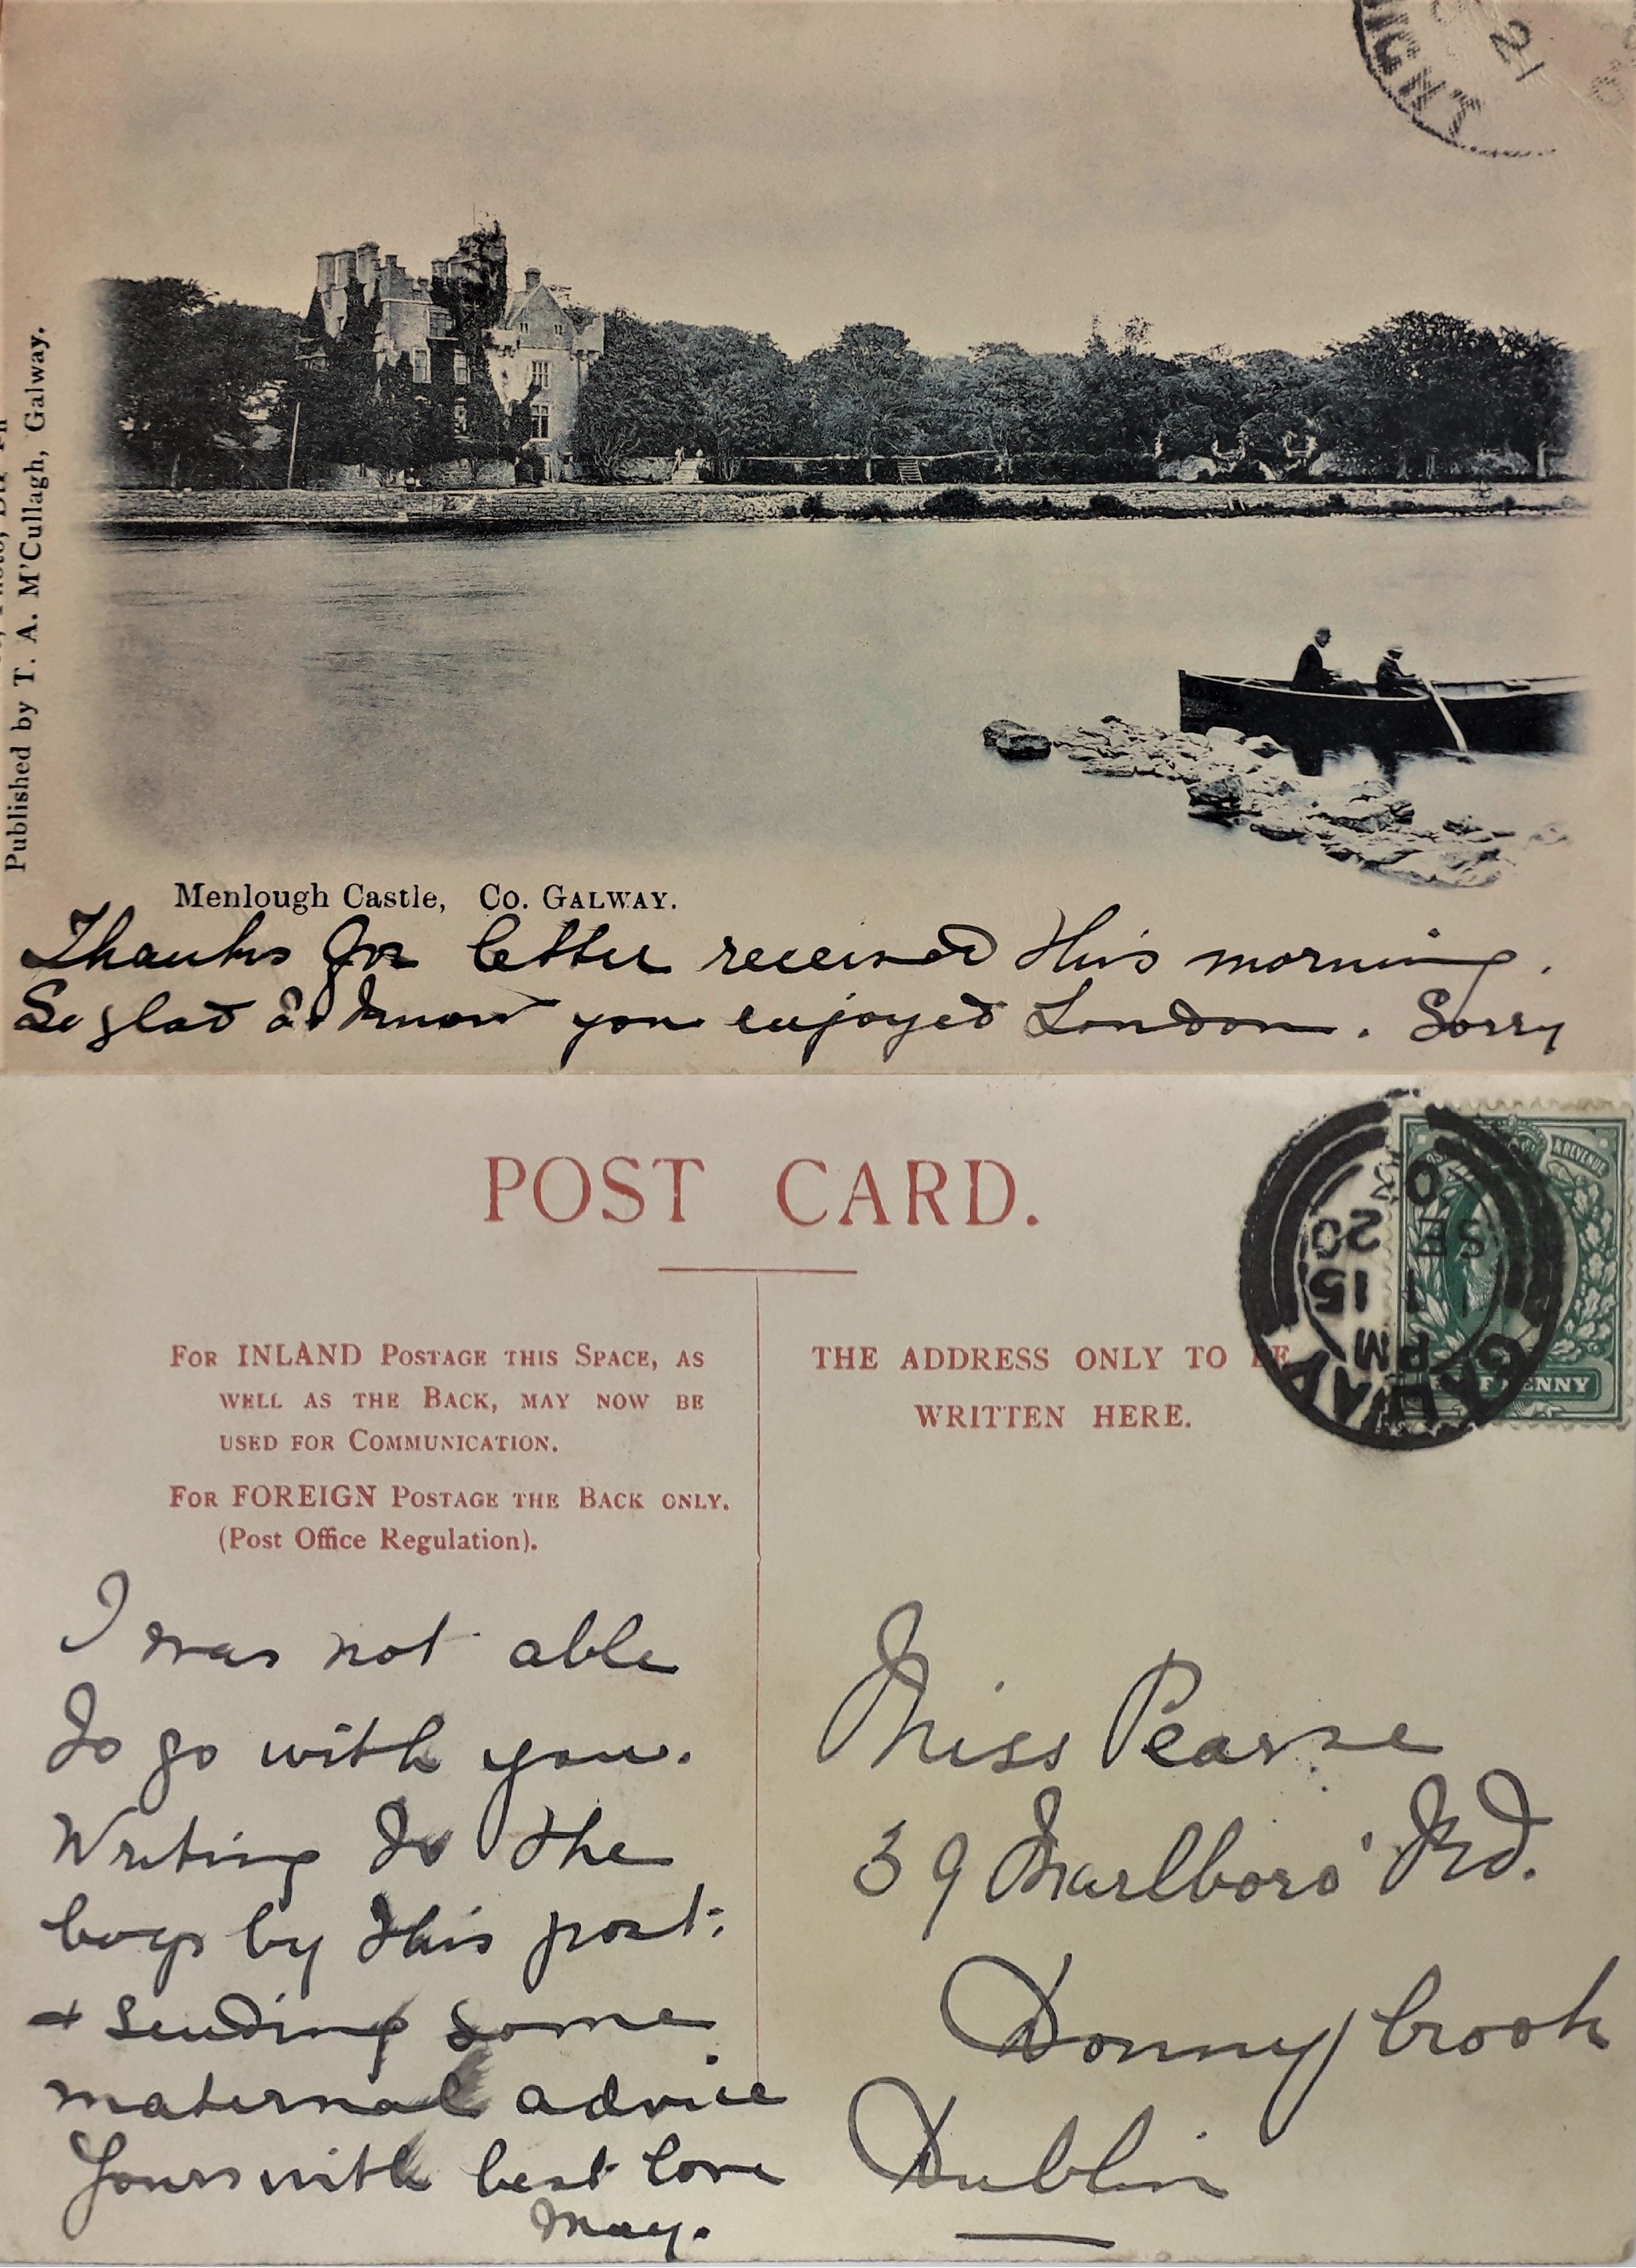 IGHT
21
Published by T. A. M'Cullagh, Galway.
Menlough Castle, Co. GALWAY.
Thanks for letter received this morning.
So glad to know you enjoyed London. Sorry
POST CARD.
FOR INLAND POSTAGE THIS SPACE, AS
WELL AS THE BACK, MAY NOW BE
USED FOR COMMUNICATION.
FOR FOREIGN POSTAGE THE BACK ONLY.
(Post Office Regulation).
THE ADDRESS ONLY TO BE
WRITTEN HERE.
& REVENUE
PENNY
GALWAY
1 15 PM
SE 20
I was not able
to go with you.
Writing to the
boys by this post:
+ sending some
maternal advice
Yours with best love
May.
Miss Pearse
39 Marlboro' Rd.
Donnybrook
Dublin